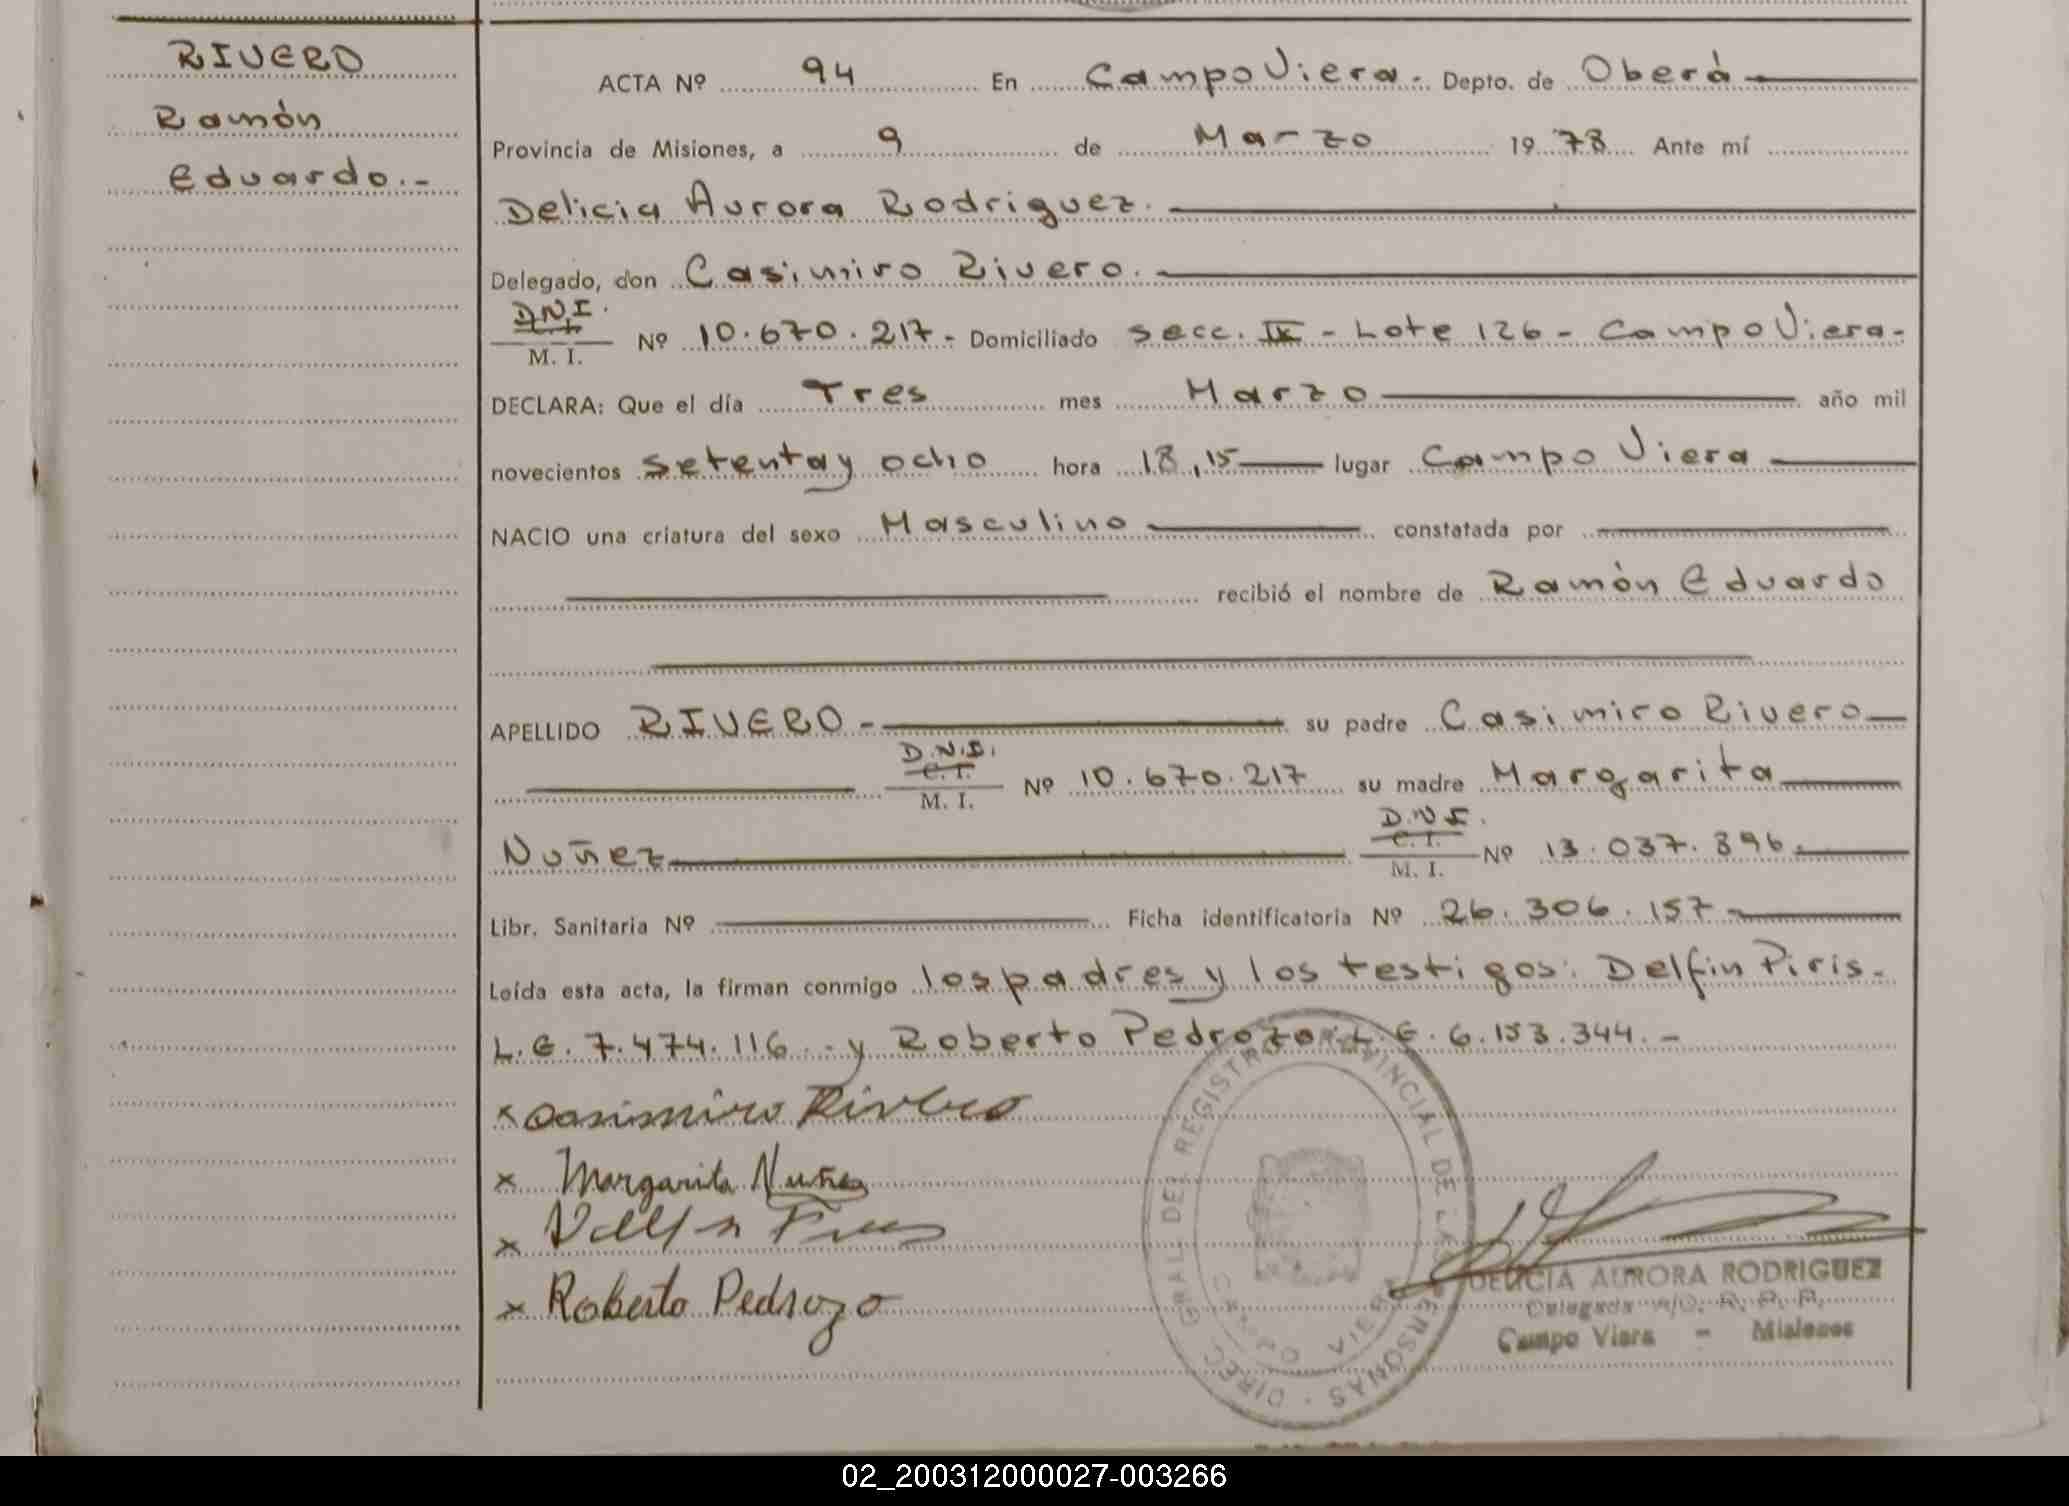 RIVERO
Ramón
Eduardo.-
ACTA Nº 94 En Campo Viera. Depto. de Oberá
Provincia de Misiones, a 9 de Marzo 1978 Ante mí
Delicia Aurora Rodriguez.
Delegado, don Casimiro Rivero.
D.N.I.
M. I. Nº 10.670.217- Domiciliado secc. IX - Lote 126 - Campo Viera-
DECLARA: Que el día Tres mes Marzo año mil
novecientos setenta y ocho hora 18,15 lugar Campo Viera
NACIO una criatura del sexo Masculino constatada por
recibió el nombre de Ramón Eduardo
APELLIDO RIVERO - su padre Casimiro Rivero
D.N.I.
C. I.
M. I. Nº 10.670.217 su madre Margarita
D.N.I.
Nuñez C. I.
M. I. Nº 13.037.896.
Libr. Sanitaria Nº Ficha identificatoria Nº 26.306.157-
Leída esta acta, la firman conmigo los padres y los testigos: Delfin Piris-
L.E. 7.474.116.- y Roberto Pedrozo L.E. 6.153.344.-
x Casimiro Rivero
x Margarita Nuñez
x Delfin Piris
x Roberto Pedrozo
DIREC. GRAL. DEL REGISTRO PROVINCIAL DE LAS PERSONAS
CAMPO VIERA
DELICIA AURORA RODRIGUEZ
Delegada R. P. P.
Campo Viera - Misiones
02_200312000027-003266